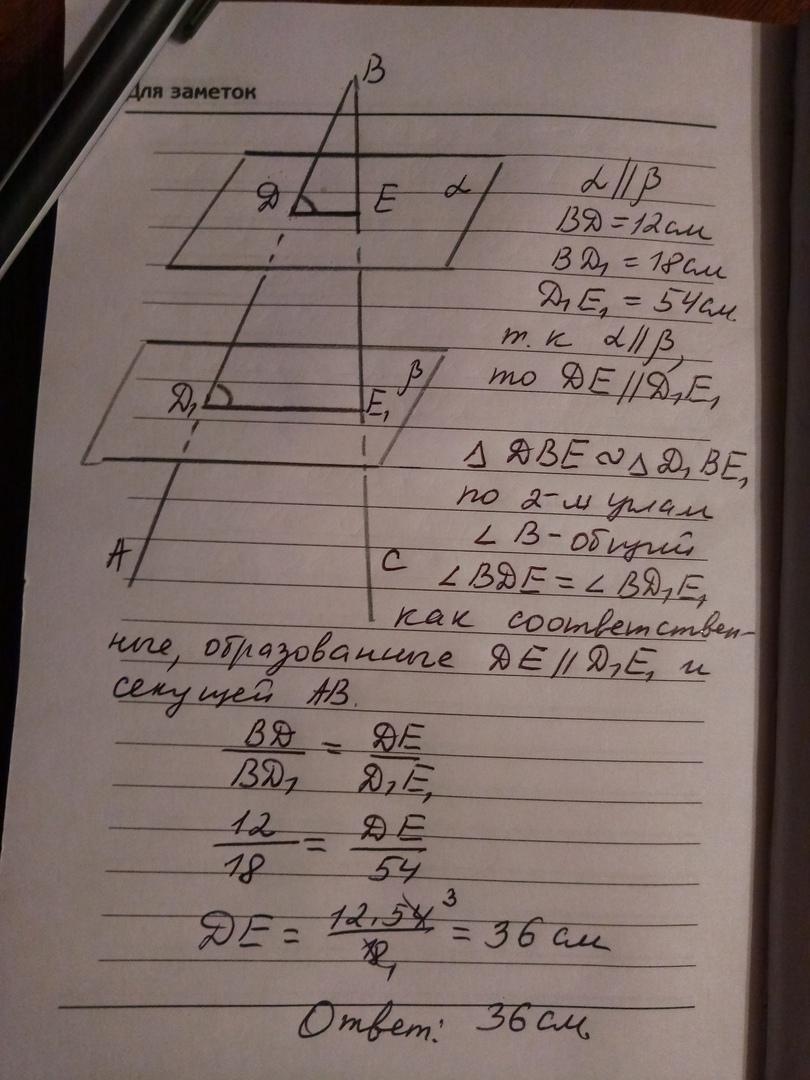 Для заметок
B
D E α
α//β
BD = 12 см
BD₁ = 18 см
D₁E₁ = 54 см.
т.к α//β,
то DE//D₁E₁
D₁ E₁ β
Δ DBE ∾ Δ D₁BE₁
по 2-м углам
∠ B - общий
A C
∠ BDE = ∠ BD₁E₁
как соответствен-
ные, образованные DE // D₁E₁ и
секущей AB.
BD/BD₁ = DE/D₁E₁
12/18 = DE/54
DE = 12·54 ³/18 ₁ = 36 см
Ответ: 36 см.